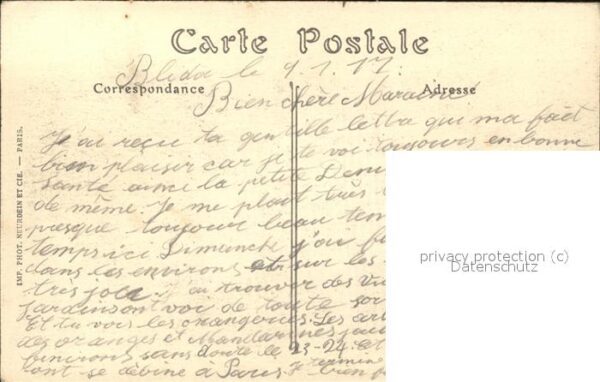 Carte Postale
Blida le 9.1.17.
Correspondance
Adresse
Bien chère Marraine
J'ai reçu ta gentille lettre qui ma fait
bien plaisir car je te voi toujours en bonne
sante ainsi la petite
de même. Je me plait très
presque toujour beau tem
temps ici Dimanche j'ai
dans les environs et sur les
très joli j'ai trouver des
jardins on voi de toute sor
Et tu vois les orangeries. Les ar
des oranges et Mandarines
finirons sans doute le 23-24. et
ont se débine à Paris. Je termine
bien
IMP. PHOT. NEURDEIN ET CIE. — PARIS.
privacy protection (c)
Datenschutz